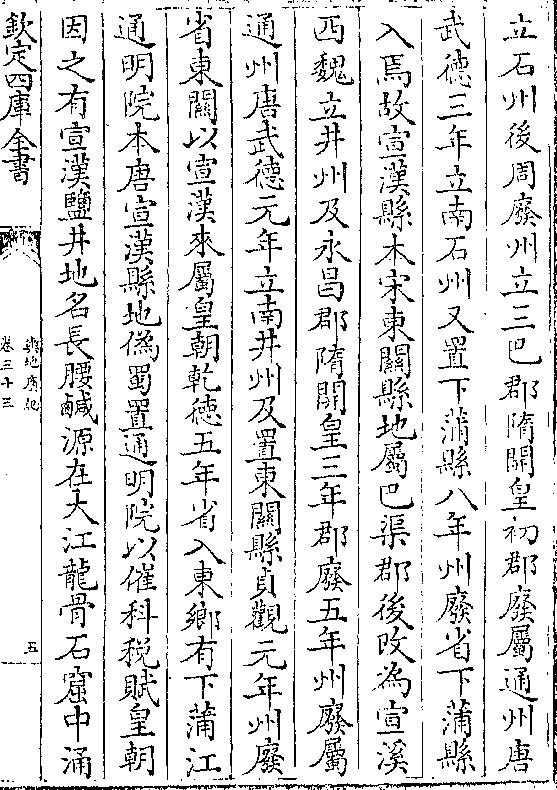 立石州後周廢州立三巴郡隋開皇初郡廢屬通州唐
武德三年立南石州又置下蒲縣八年州廢省下蒲縣
入焉故宣漢縣本宋東關縣地屬巴渠郡後改為宣溪
西魏立井州及永昌郡隋開皇三年郡廢五年州廢屬
通州唐武德元年立南井州及置東關縣貞觀元年州廢
省東關以宣漢來屬皇朝乾德五年省入東鄉有下蒲江
通明院本唐宣漢縣地偽蜀置通明院以催科税賦皇朝
因之有宣漢鹽井地名長腰鹹源在大江龍骨石窟中涌
欽定四庫全書
輿地廣記
卷三十三
五